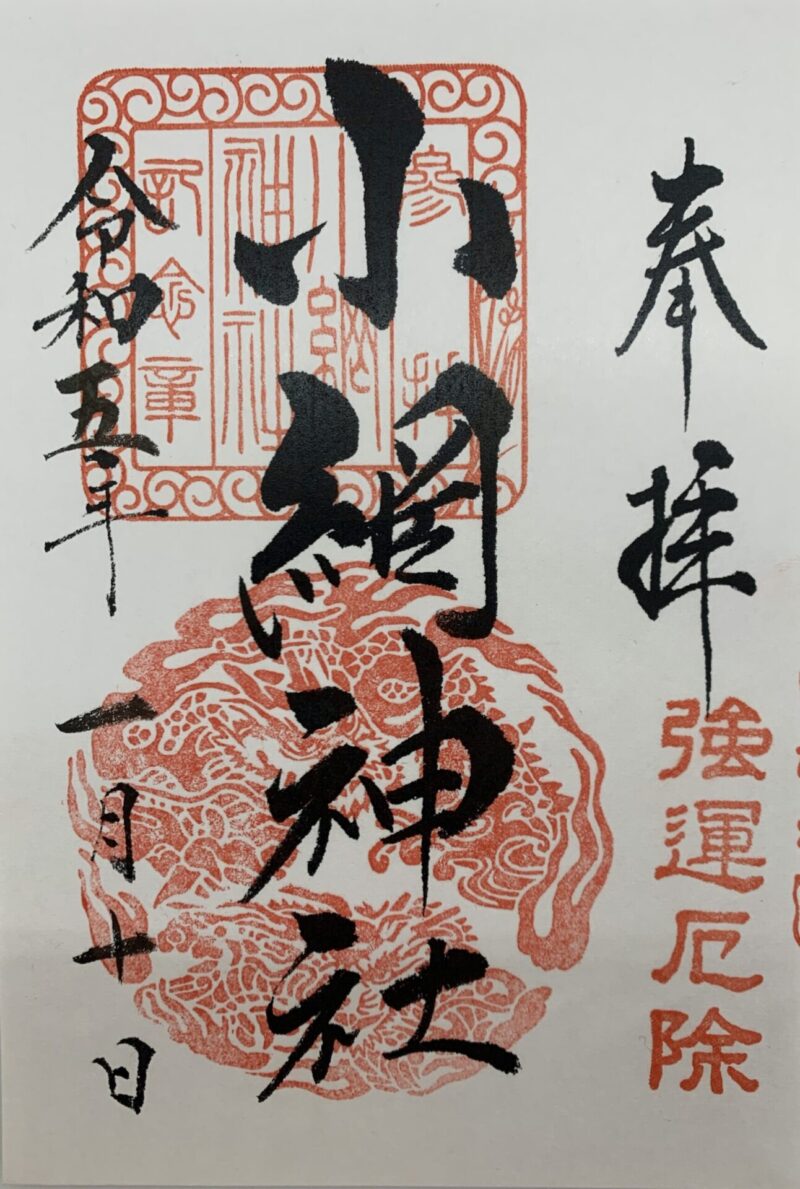 奉拝
強運厄除
参拝
小網
神社
記念章
小網神社
令和五年一月十日